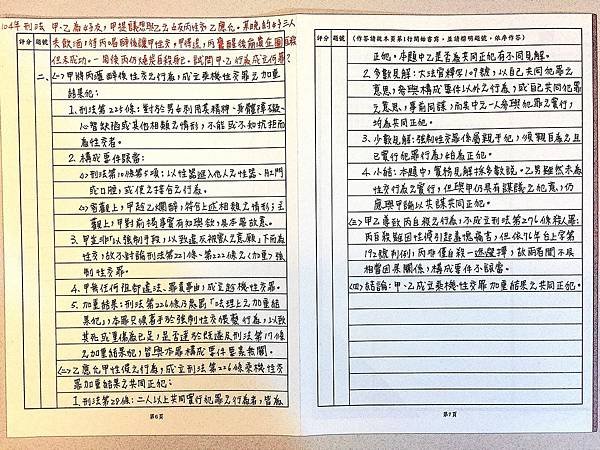 104年刑法 甲、乙為好友,甲提議想與乙之女友丙性交,乙應允。某晚約好三人
去飲酒,待丙喝醉後讓甲性交,甲得逞。丙
但未成功。一周後丙仍燒炭自殺死亡。試問甲、乙行為成立何罪?
評分
題號
二、
(一)甲將丙灌醉後性交之行為,成立乘機性交罪之加重
結果犯:
1. 刑法第225條:對於男女利用其精神、身體障礙、
心智缺陷或其他相類之情形,不能或不知抗拒而
為性交者。
2. 構成要件該當:
(1)刑法第10條第5項:以性器進入他人之性器、肛門
或口腔,或使之接合之行為。
(2)客觀上,甲趁乙爛醉,符合上述相類之情形;主
觀上,甲對前揭事實有知與欲,具本罪故意。
3. 甲並非以強制手段,以致違反被害人意願下而為
性交,故不討論刑法第221條、第222條之(加重)強
制性交罪。
4. 甲無任何阻卻違法、罪責事由,成立趁機性交罪。
5. 加重結果:刑法第226條乃屬「法理上之加重結
果犯」,本罪只須著手於強制性交猥褻行為,以致
其死或重傷為已足,是否達於既遂及刑法第17條
之加重結果犯,皆與本罪構成要件要素無關。
(二)乙應允甲性侵之行為,成立刑法第226條乘機性交
罪加重結果之共同正犯:
1. 刑法第28條:二人以上共同實行犯罪之行為者,皆為
第6頁
評分
題號
(作答請從本頁第1行開始書寫,並請標明題號,依序作答)
正犯。本題中乙是否為共同正犯有不同見解。
2. 多數見解:大法官釋字109號,以自己共同犯罪之
意思,參與構成要件以外之行為,或自己共同犯罪
之意思,事前同謀,而其中之一人參與犯罪之實行,
均為共同正犯。
3. 少數見解:強制性交罪係屬親手犯,必須親自為之且
已實行犯罪行為,始為正犯。
4. 小結:本題中,實務見解採多數說。乙男雖然未為
性交行為之實行,但與甲仍具有謀議之犯意,仍
應與甲論以共謀共同正犯。
(三)甲乙導致丙自殺之行為,不成立刑法第276條殺人罪:
丙自殺雖因性侵引起羞愧痛苦,但依76年台上字第
192號判例,丙非僅自殺一途選擇,故兩者間不具
相當因果關係,構成要件不該當。
(四)結論:甲、乙成立乘機性交罪加重結果之共同正犯。
第7頁